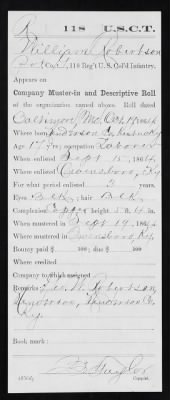 R 118 U.S.C.T.
William Robertson
Private, 118 Reg't U. S. Col'd Infantry.
Appears on
Company Muster-in and Descriptive Roll
of the organization named above. Roll dated
Baltimore Md. Oct 19, 1864
Where born Henderson Co Kentucky
Age 17 y'rs; occupation Laborer
When enlisted Sept 15, 1864
Where enlisted Owensboro, Ky
For what period enlisted 3 years.
Eyes Blk; hair Blk
Complexion Copper height 5 ft. 4 in.
When mustered in Sept 19, 1864
Where mustered in Owensboro, Ky.
Bounty paid $ 100; due $ 100
Where credited
Company to which assigned
Remarks: Geo. W. Robertson,
Henderson, Henderson Co.
Ky.
Book mark:
Copyist.